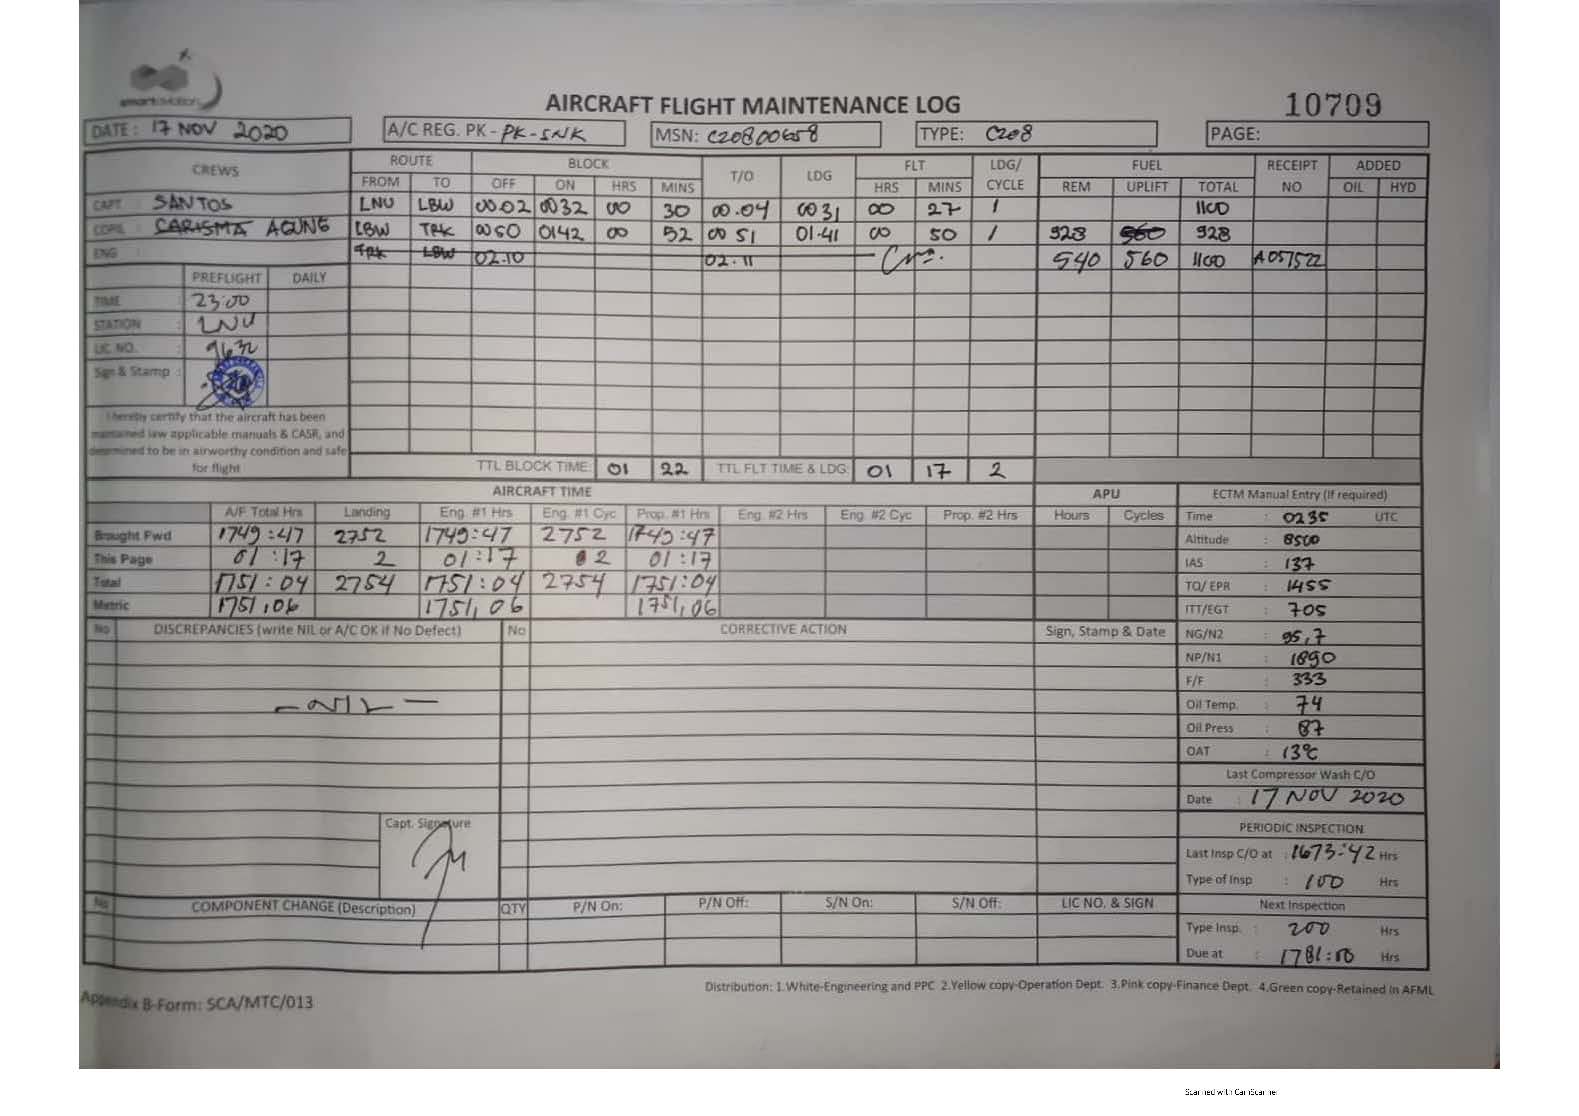 smart aviation
AIRCRAFT FLIGHT MAINTENANCE LOG
10709
DATE : 17 NOV 2020
A/C REG. PK - PK-SNK
MSN: C20800658
TYPE: C208
PAGE:
CREWS ROUTE BLOCK T/O LDG FLT LDG/ CYCLE FUEL RECEIPT NO ADDED
FROM TO OFF ON HRS MINS HRS MINS REM UPLIFT TOTAL OIL HYD
CAPT : SANTOS LNU LBW 0002 0032 00 30 00.04 0031 00 27 1 1100
COPIL : CARISMA AGUNG LBW TRK 0050 0142 00 52 00 51 01.41 00 50 1 928 560 928
ENG : TRK LBW 02.10 02.11 540 560 1100 A057522
PREFLIGHT DAILY
TIME : 23:00
STATION : LNU
LIC NO. :
Sign & Stamp :
I hereby certify that the aircraft has been
maintained iaw applicable manuals & CASR, and
determined to be in airworthy condition and safe
for flight
TTL BLOCK TIME: 01 22 TTL FLT TIME & LDG: 01 17 2
AIRCRAFT TIME APU ECTM Manual Entry (If required)
A/F Total Hrs Landing Eng. #1 Hrs Eng. #1 Cyc Prop. #1 Hrs Eng. #2 Hrs Eng. #2 Cyc Prop. #2 Hrs Hours Cycles
Brought Fwd 1749:47 2752 1749:47 2752 1749:47
This Page 01:17 2 01:17 2 01:17
Total 1751:04 2754 1751:04 2754 1751:04
Metric 1751,06 1751,06 1751,06
Time : 0235 UTC
Altitude : 8500
IAS : 137
TQ/ EPR : 1455
ITT/EGT : 705
NG/N2 : 95,7
NP/N1 : 1890
F/F : 333
Oil Temp. : 74
Oil Press : 87
OAT : 13°C
Last Compressor Wash C/O
Date : 17 NOV 2020
PERIODIC INSPECTION
Last Insp C/O at : 1673:42 Hrs
Type of Insp : 100 Hrs
Next Inspection
Type Insp. : 200 Hrs
Due at : 1781:10 Hrs
No DISCREPANCIES (write NIL or A/C OK if No Defect) No CORRECTIVE ACTION Sign, Stamp & Date
- NIL -
Capt. Signature
No COMPONENT CHANGE (Description) QTY P/N On: P/N Off: S/N On: S/N Off: LIC NO. & SIGN
Distribution: 1.White-Engineering and PPC 2.Yellow copy-Operation Dept. 3.Pink copy-Finance Dept. 4.Green copy-Retained in AFML
Appendix B-Form: SCA/MTC/013
Scanned with CamScanner